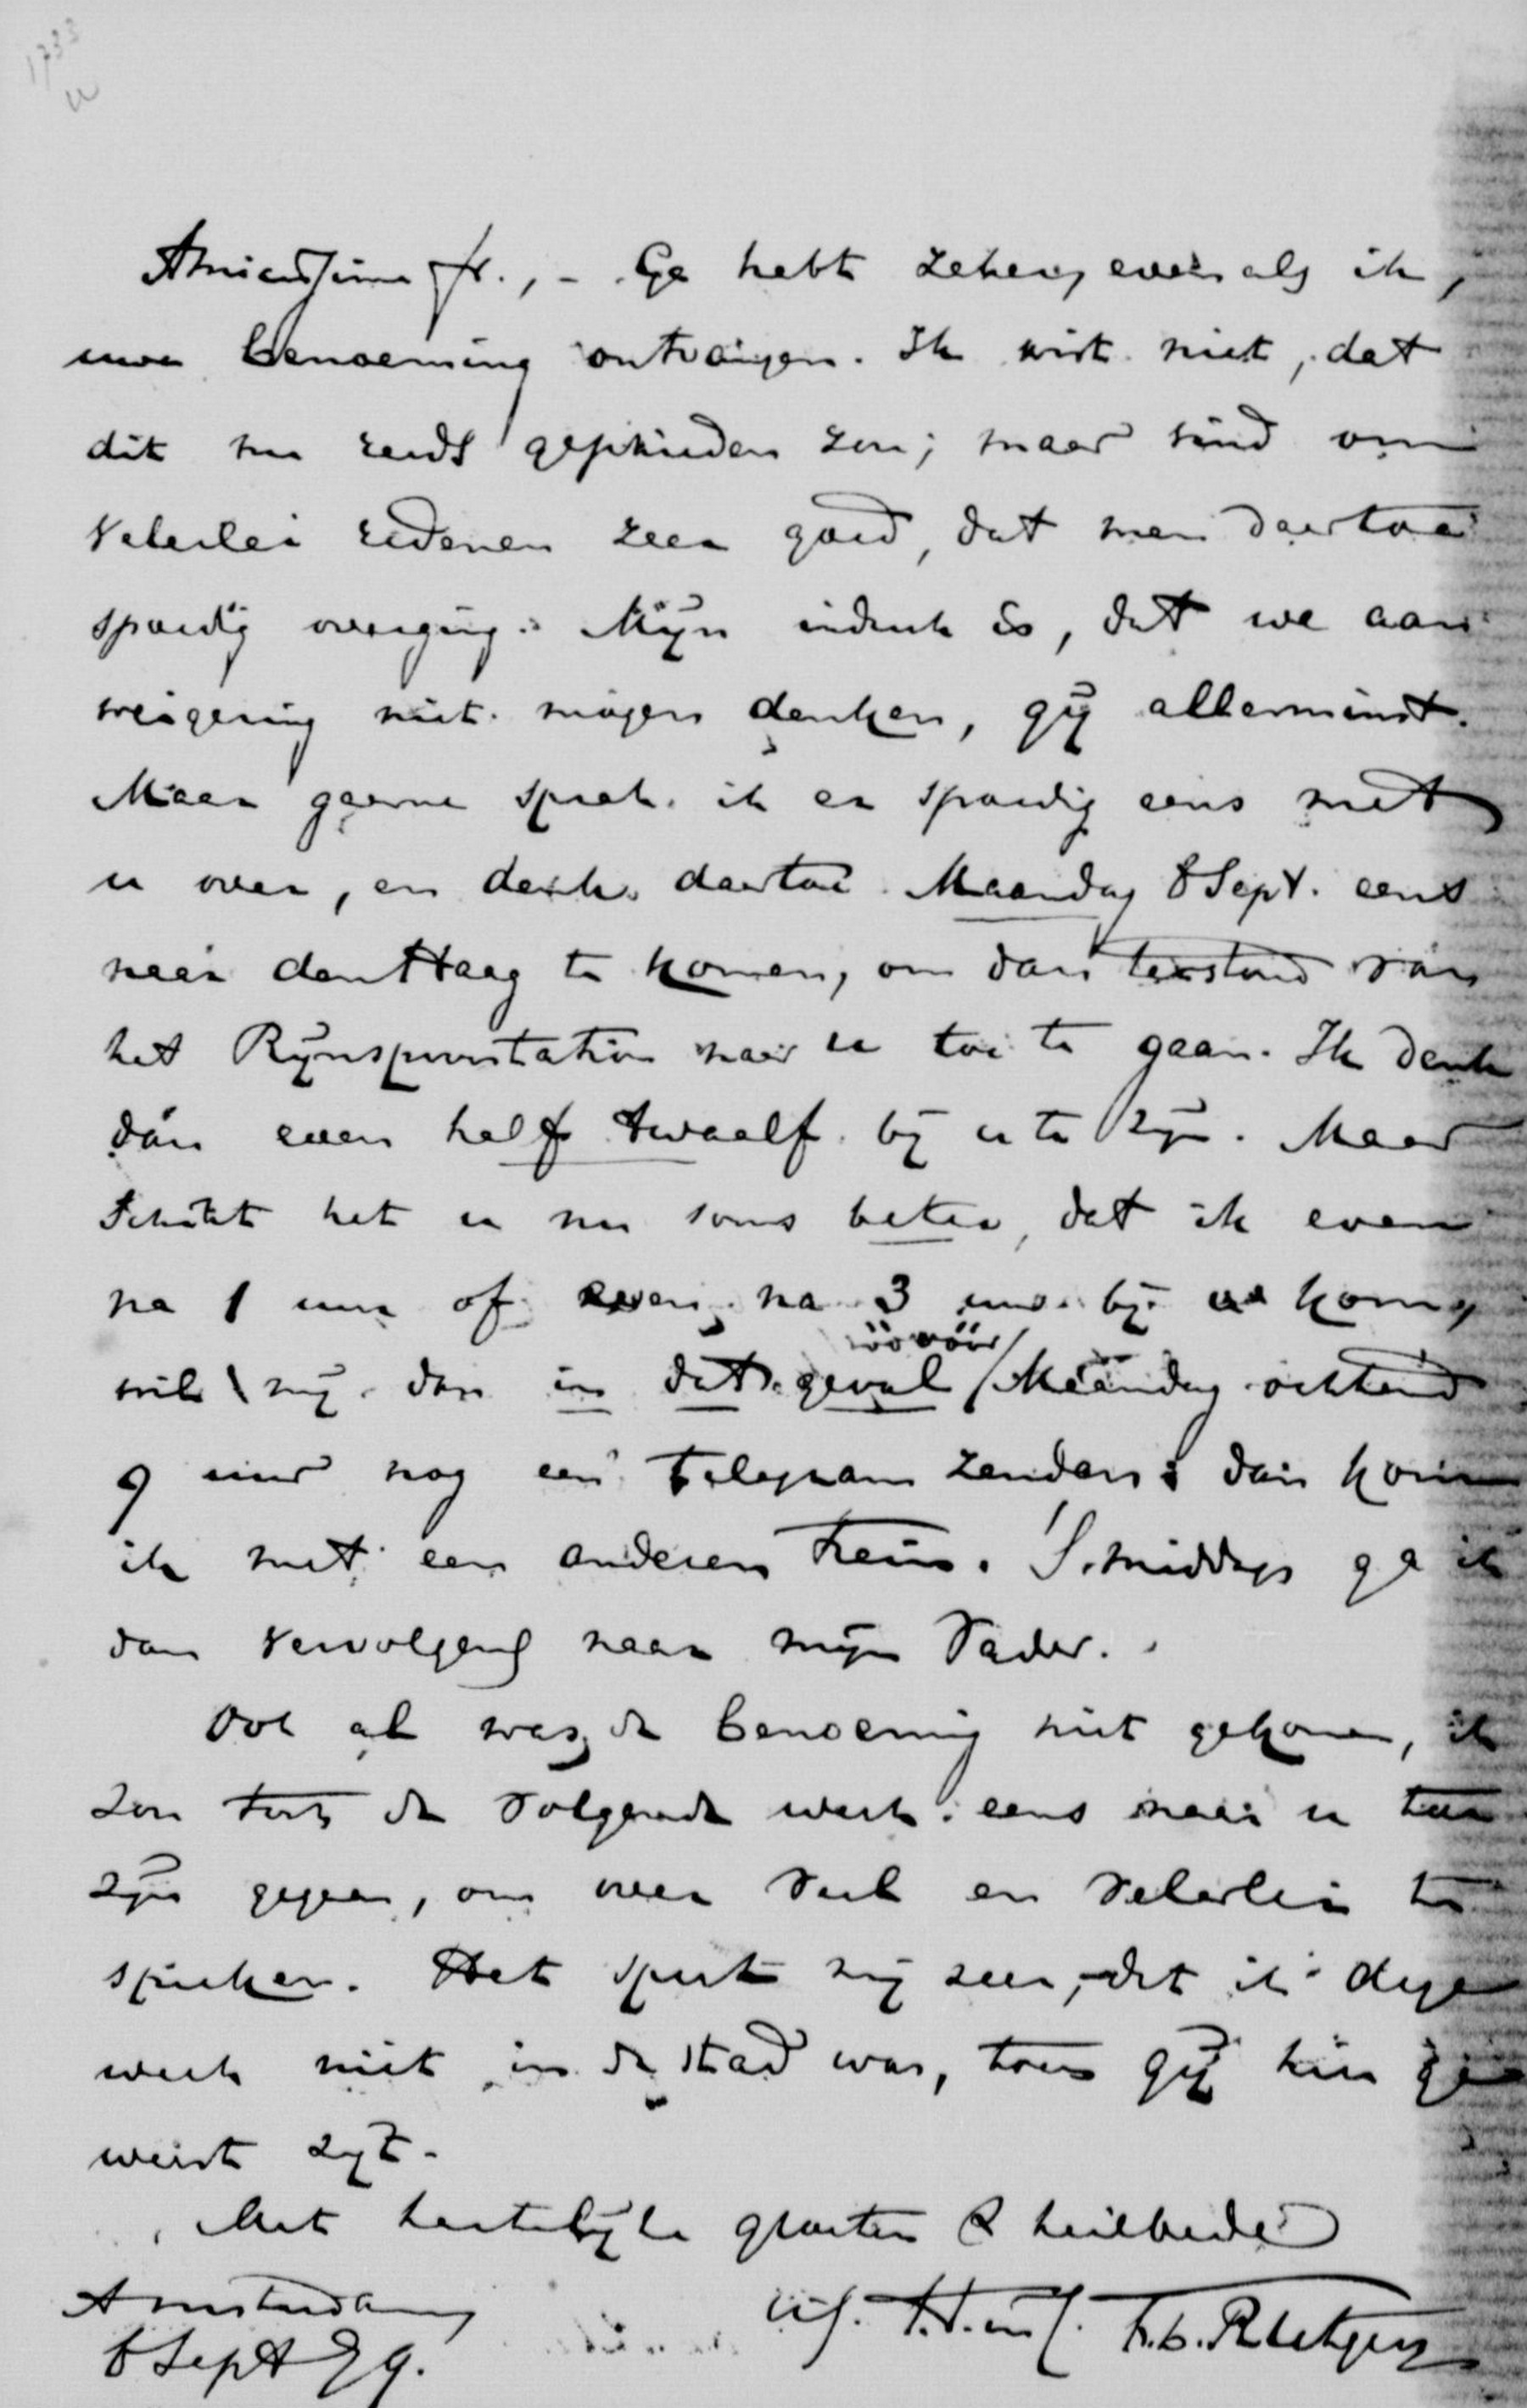 1733
Amicissime fr., - Ge hebt zeker, evenals ik,
uwe benoeming ontvangen. Ik wist niet, dat
dit nu reeds geschieden zou; maar vind om
velerlei redenen zeer goed, dat men daartoe
spoedig overging. Mijn indruk is, dat we aan
weigering niet mogen denken, gij allerminst.
Maar gaarne sprak ik er spoedig eens met
u over, en denk daartoe Maandag 8 Sept. eens
naar den Haag te komen, om dan terstond van
het Rijnspoorstation naar u toe te gaan. Ik denk
dan even half twaalf bij u te zijn. Maar
schikt het u nu soms beter, dat ik even
na 1 uur of even na 3 uur bij u kom,
wil mij dan in dat geval Maandag ochtend
vóór
9 uur nog een telegram zenden; dan kom
ik met een anderen trein. 'S middags ga ik
dan vervolgens naar mijn Vader.
Ook al was de benoeming niet gekomen, ik
zou toch de volgende week eens naar u toe
zijn gegaan, om over veel en velerlei te
spreken. Het speet mij zeer, dat ik deze
week niet in de stad was, toen gij hier ge
weest zijt.
Met hartelijke groeten & heilbede
Amsterdam
6 Sept 79.
F.L. Rutgers